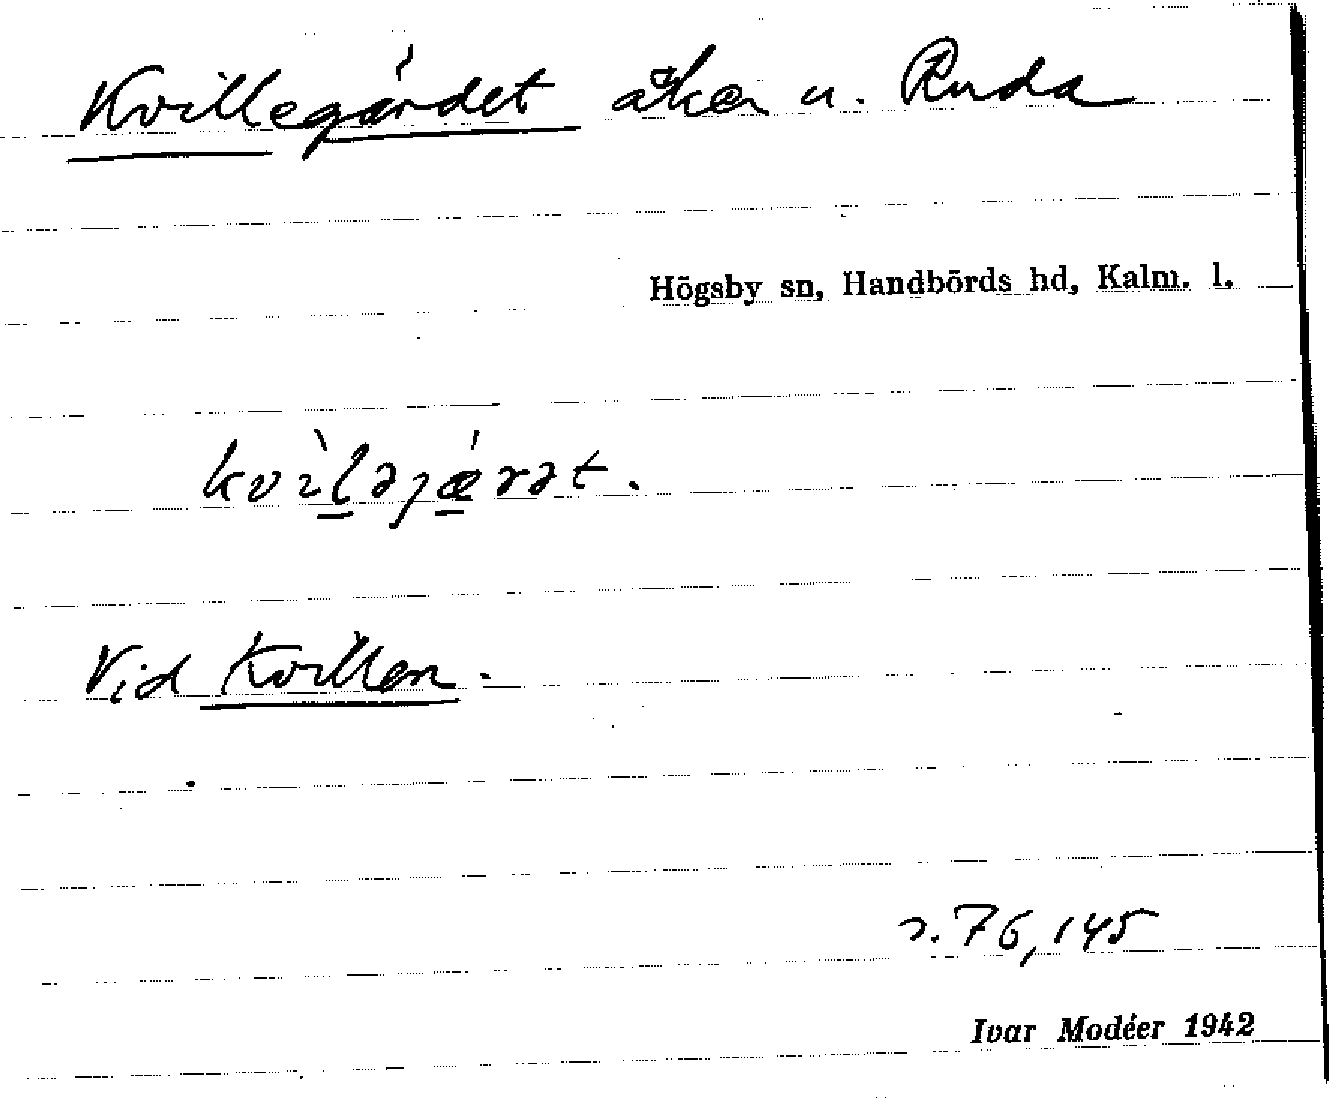 Kvillegärdet åker u. Ruda
Högsby sn, Handbörds hd, Kalm. l.
kvìləȷǽrət.
Vid Kvillen.
s. 76, 145
Ivar Modéer 1942